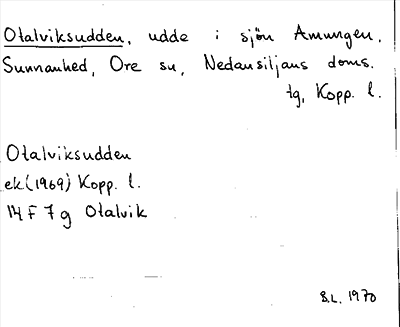 Otalviksudden, udde i sjön Amungen,
Sunnanhed, Ore sn, Nedansiljans doms.
tg, Kopp. l.
Otalviksudden
ek (1969) Kopp. l.
14 F 7 g Otalvik
S.L. 1970